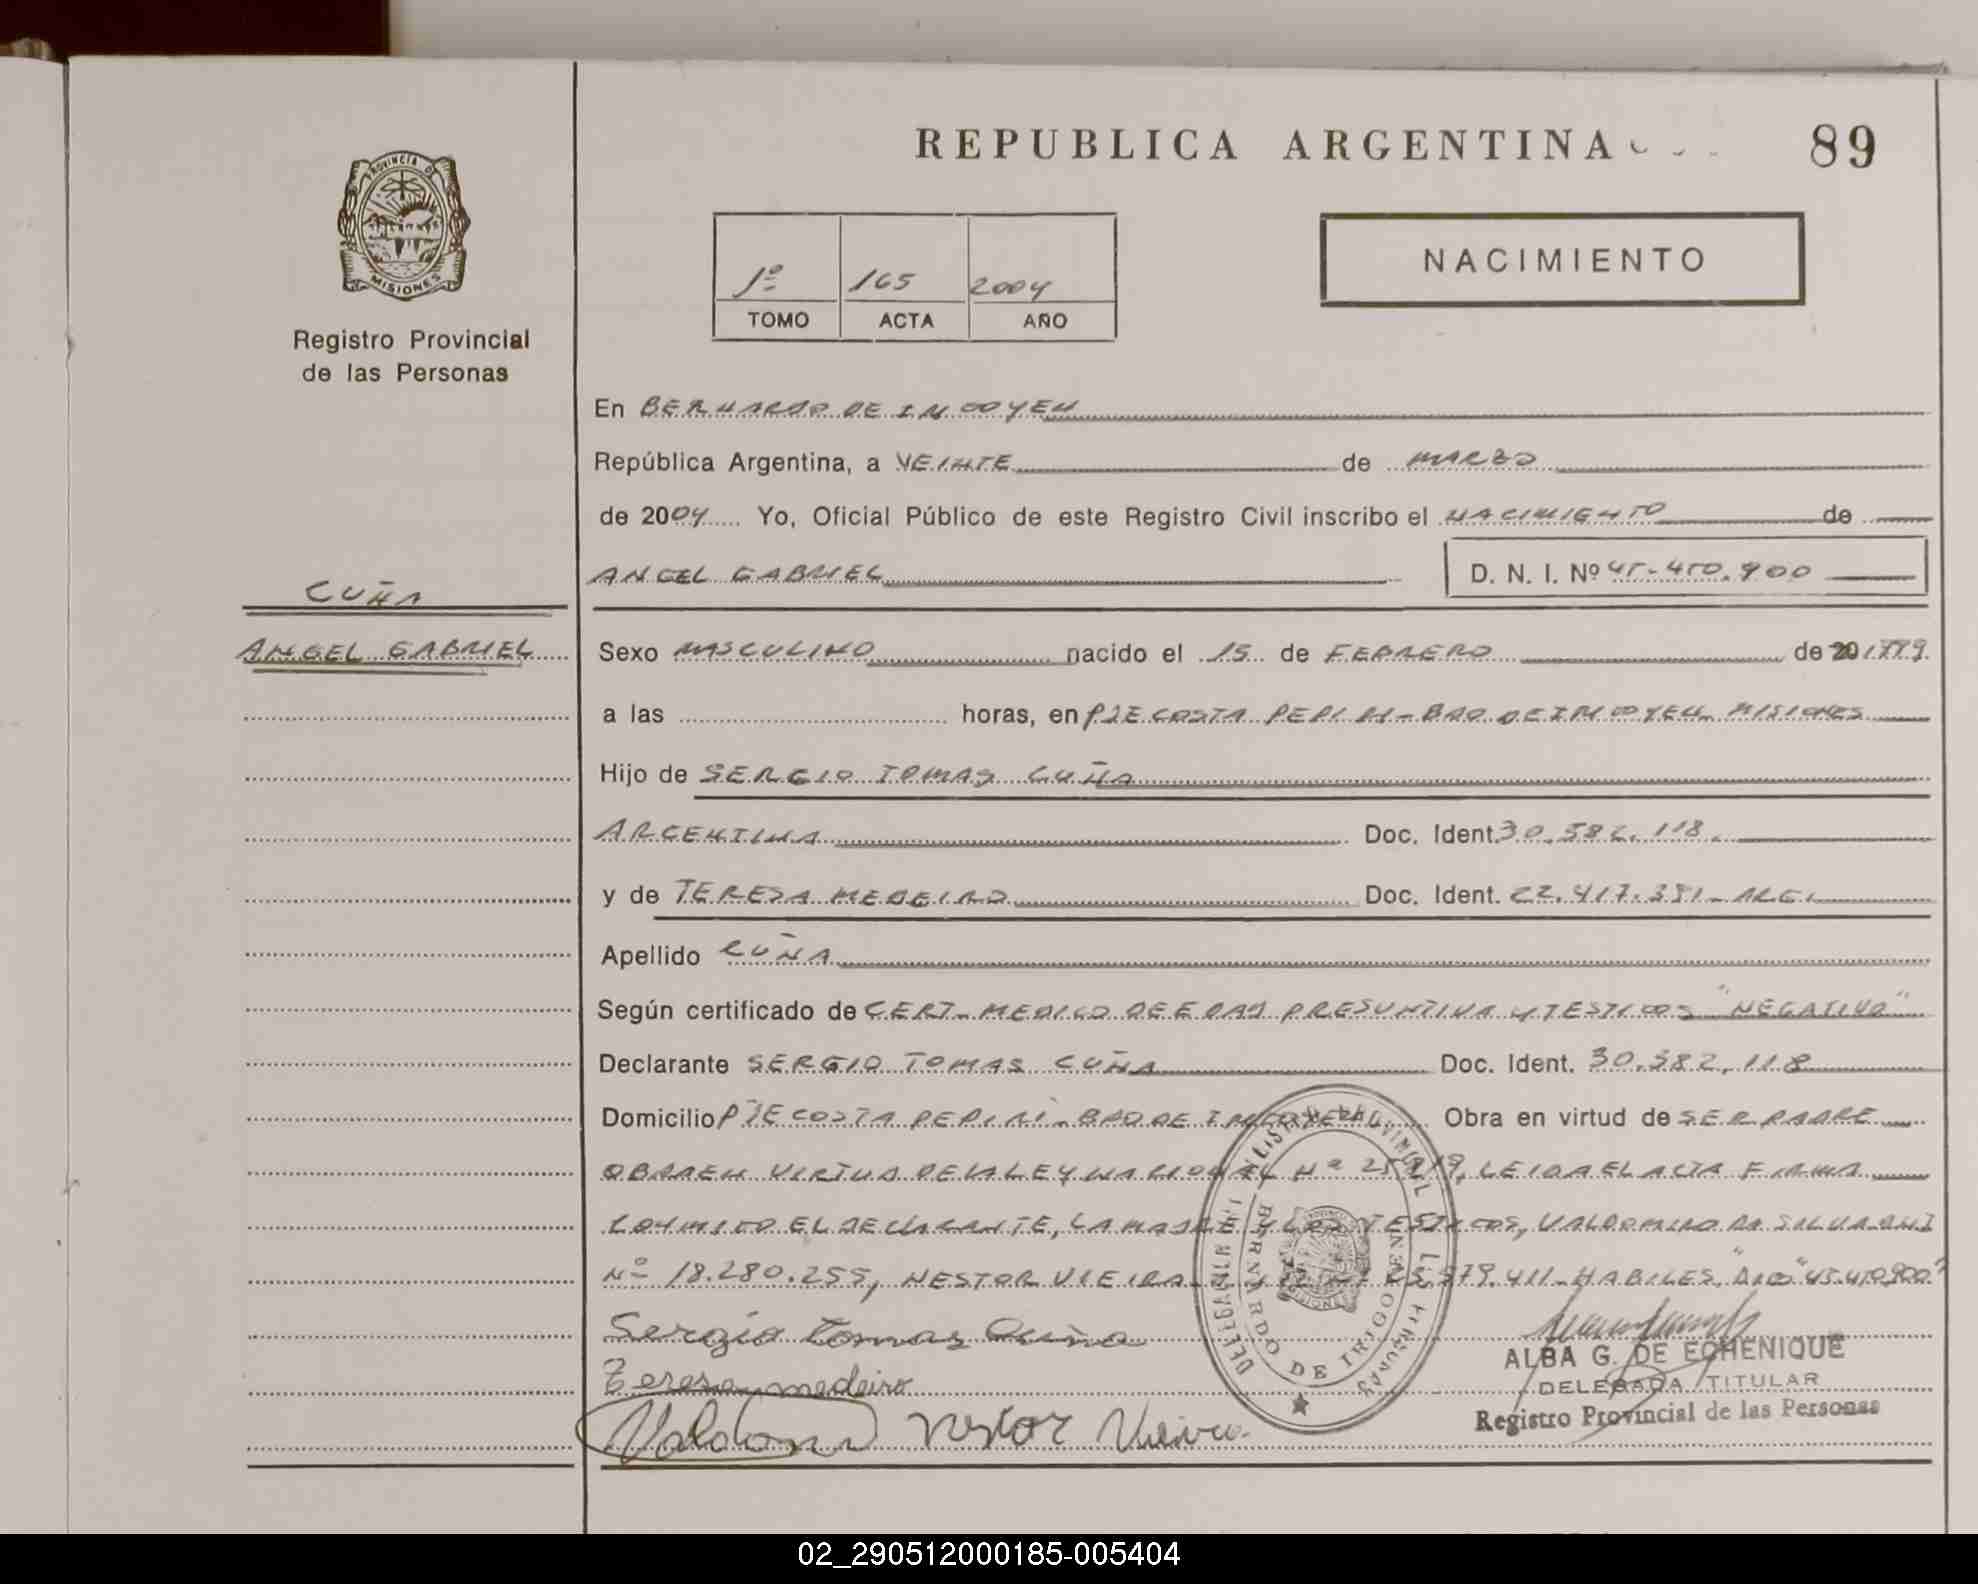 REPUBLICA ARGENTINA
89
PROVINCIA DE
MISIONES
Registro Provincial
de las Personas
1º 165 2004
TOMO ACTA AÑO
NACIMIENTO
En BERNARDO DE IRIGOYEN
República Argentina, a VEINTE de MARZO
de 2004 Yo, Oficial Público de este Registro Civil inscribo el NACIMIENTO de
ANGEL GABRIEL D. N. I. Nº 45-410.900
CUÑA
ANGEL GABRIEL
Sexo MASCULINO nacido el 15 de FEBRERO de 20 1999.
a las horas, en PJE COSTA PEPIRI - BDO DE IRIGOYEN MISIONES
Hijo de SERGIO TOMAS CUÑA
ARGENTINA Doc. Ident. 30.382.118.
y de TERESA MEDEIRO Doc. Ident. 22.417.391- ARG.
Apellido CUÑA
Según certificado de CERT. MEDICO DE EDAD PRESUNTIVA Y TESTIGOS "NEGATIVO"
Declarante SERGIO TOMAS CUÑA Doc. Ident. 30.382.118
Domicilio PJE COSTA PEPIRI - BDO DE IRIGOYEN Obra en virtud de SER PADRE
OBRA EN VIRTUD DE LA LEY NACIONAL Nº 25819, LEIDA EL ACTA FIRMA
CONMIGO EL DECLARANTE, LA MADRE Y LOS TESTIGOS, VALDOMIRO DA SILVA DNI
Nº 18.280.255, NESTOR VIEIRA 579.411- HABILES. "DICE" 45.410.900"
Sergio tomas Cuña
Teresa medeiro
Valdomi Nestor Vieira
REGISTRO PROVINCIAL DE LAS PERSONAS
DELEGACION
BERNARDO DE IRIGOYEN
MISIONES
ALBA G. DE ECHENIQUE
DELEGADA TITULAR
Registro Provincial de las Personas
02_290512000185-005404